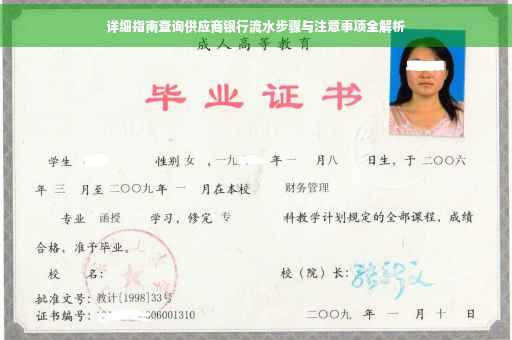 详细指南查询供应商银行流水步骤与注意事项全解析
成人高等教育
毕业证书
学生 性别 女 ，一九 年 一 月八 日生，于 二〇〇六
年 三 月至 二〇〇九 年 一 月在本校 财务管理
专业 函授 学习，修完 专 科教学计划规定的全部课程，成绩
合格，准予毕业。
校 名： 校（院）长：
批准文号：教计[1998]33号
证书编号： 06001310 二〇〇九 年 一 月 十 日